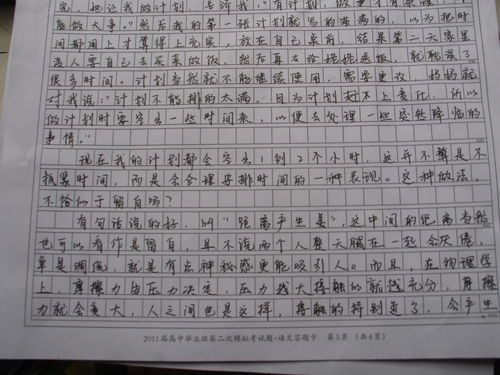 完，把
能做大事。"然后我的第一张计划就写的满满的，以为把时
间都用上才算得上充实，放在自己桌前，结果第二天家里
没人要自己去买菜做饭，然后再去给姥姥送饭，就耽误了
很多时间。计划当然就不能继续使用，需要更改，妈妈就
对我说："计划不能排的太满，因为计划赶不上变化，所以
做计划时要空出一些时间来，以便去处理一些突然降临的
事情。"
现在我的计划都会空出1到2个小时，这并不算是不
抓紧时间，而是会合理安排时间的一种表现。这种做法，
不恰似于留白吗？
有句话说的好，叫"距离产生美"，这中间的距离当然
也可以看作是留白，且不说两个人整天腻在一起会厌倦，
单是调侃，就是有点神秘感更能吸引人。而且，在物理学
上，摩擦力由压力决定，压力越大接触的就越充分，摩擦
力就会变大，人之间也是这样，接触的特别近了，会产生
2011届高中毕业班第二次模拟考试题·语文答题卡 第3页（共4页）